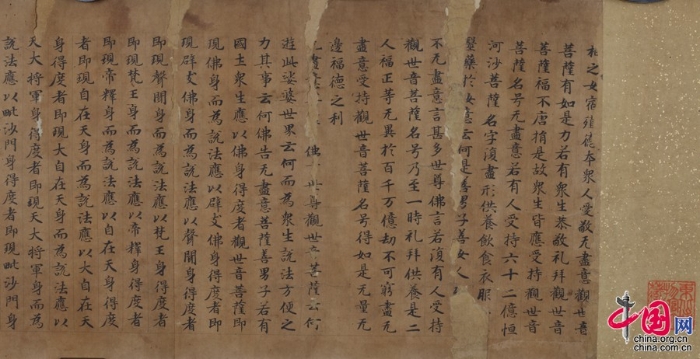 相之女宿殖德本衆人愛敬无盡意觀世音
菩薩有如是力若有衆生恭敬礼拜觀世音
菩薩福不唐捐是故衆生皆應受持觀世音
菩薩名号无盡意若有人受持六十二億恒
河沙菩薩名字復盡形供養飲食衣服
醫藥於汝意云何是善男子善女人
不无盡意言甚多世尊佛言若復有人受持
觀世音菩薩名号乃至一時礼拜供養是二
人福正等无異於百千万億劫不可窮盡无
盡意受持觀世音菩薩名号得如是无量无
邊福德之利
觀世音菩薩云何
遊此娑婆世界云何而為衆生說法方便之
力其事云何佛告无盡意菩薩善男子若有
國土衆生應以佛身得度者觀世音菩薩即
現佛身而為說法應以辟支佛身得度者即
現辟支佛身而為說法應以聲聞身得度者
即現聲聞身而為說法應以梵王身得度者
即現梵王身而為說法應以帝釋身得度者
即現帝釋身而為說法應以自在天身得度
者即現自在天身而為說法應以大自在天
身得度者即現大自在天身而為說法應以
天大將軍身得度者即現天大將軍身而為
說法應以毗沙門身得度者即現毗沙門身
中国网
china.org.cn
china.com.cn